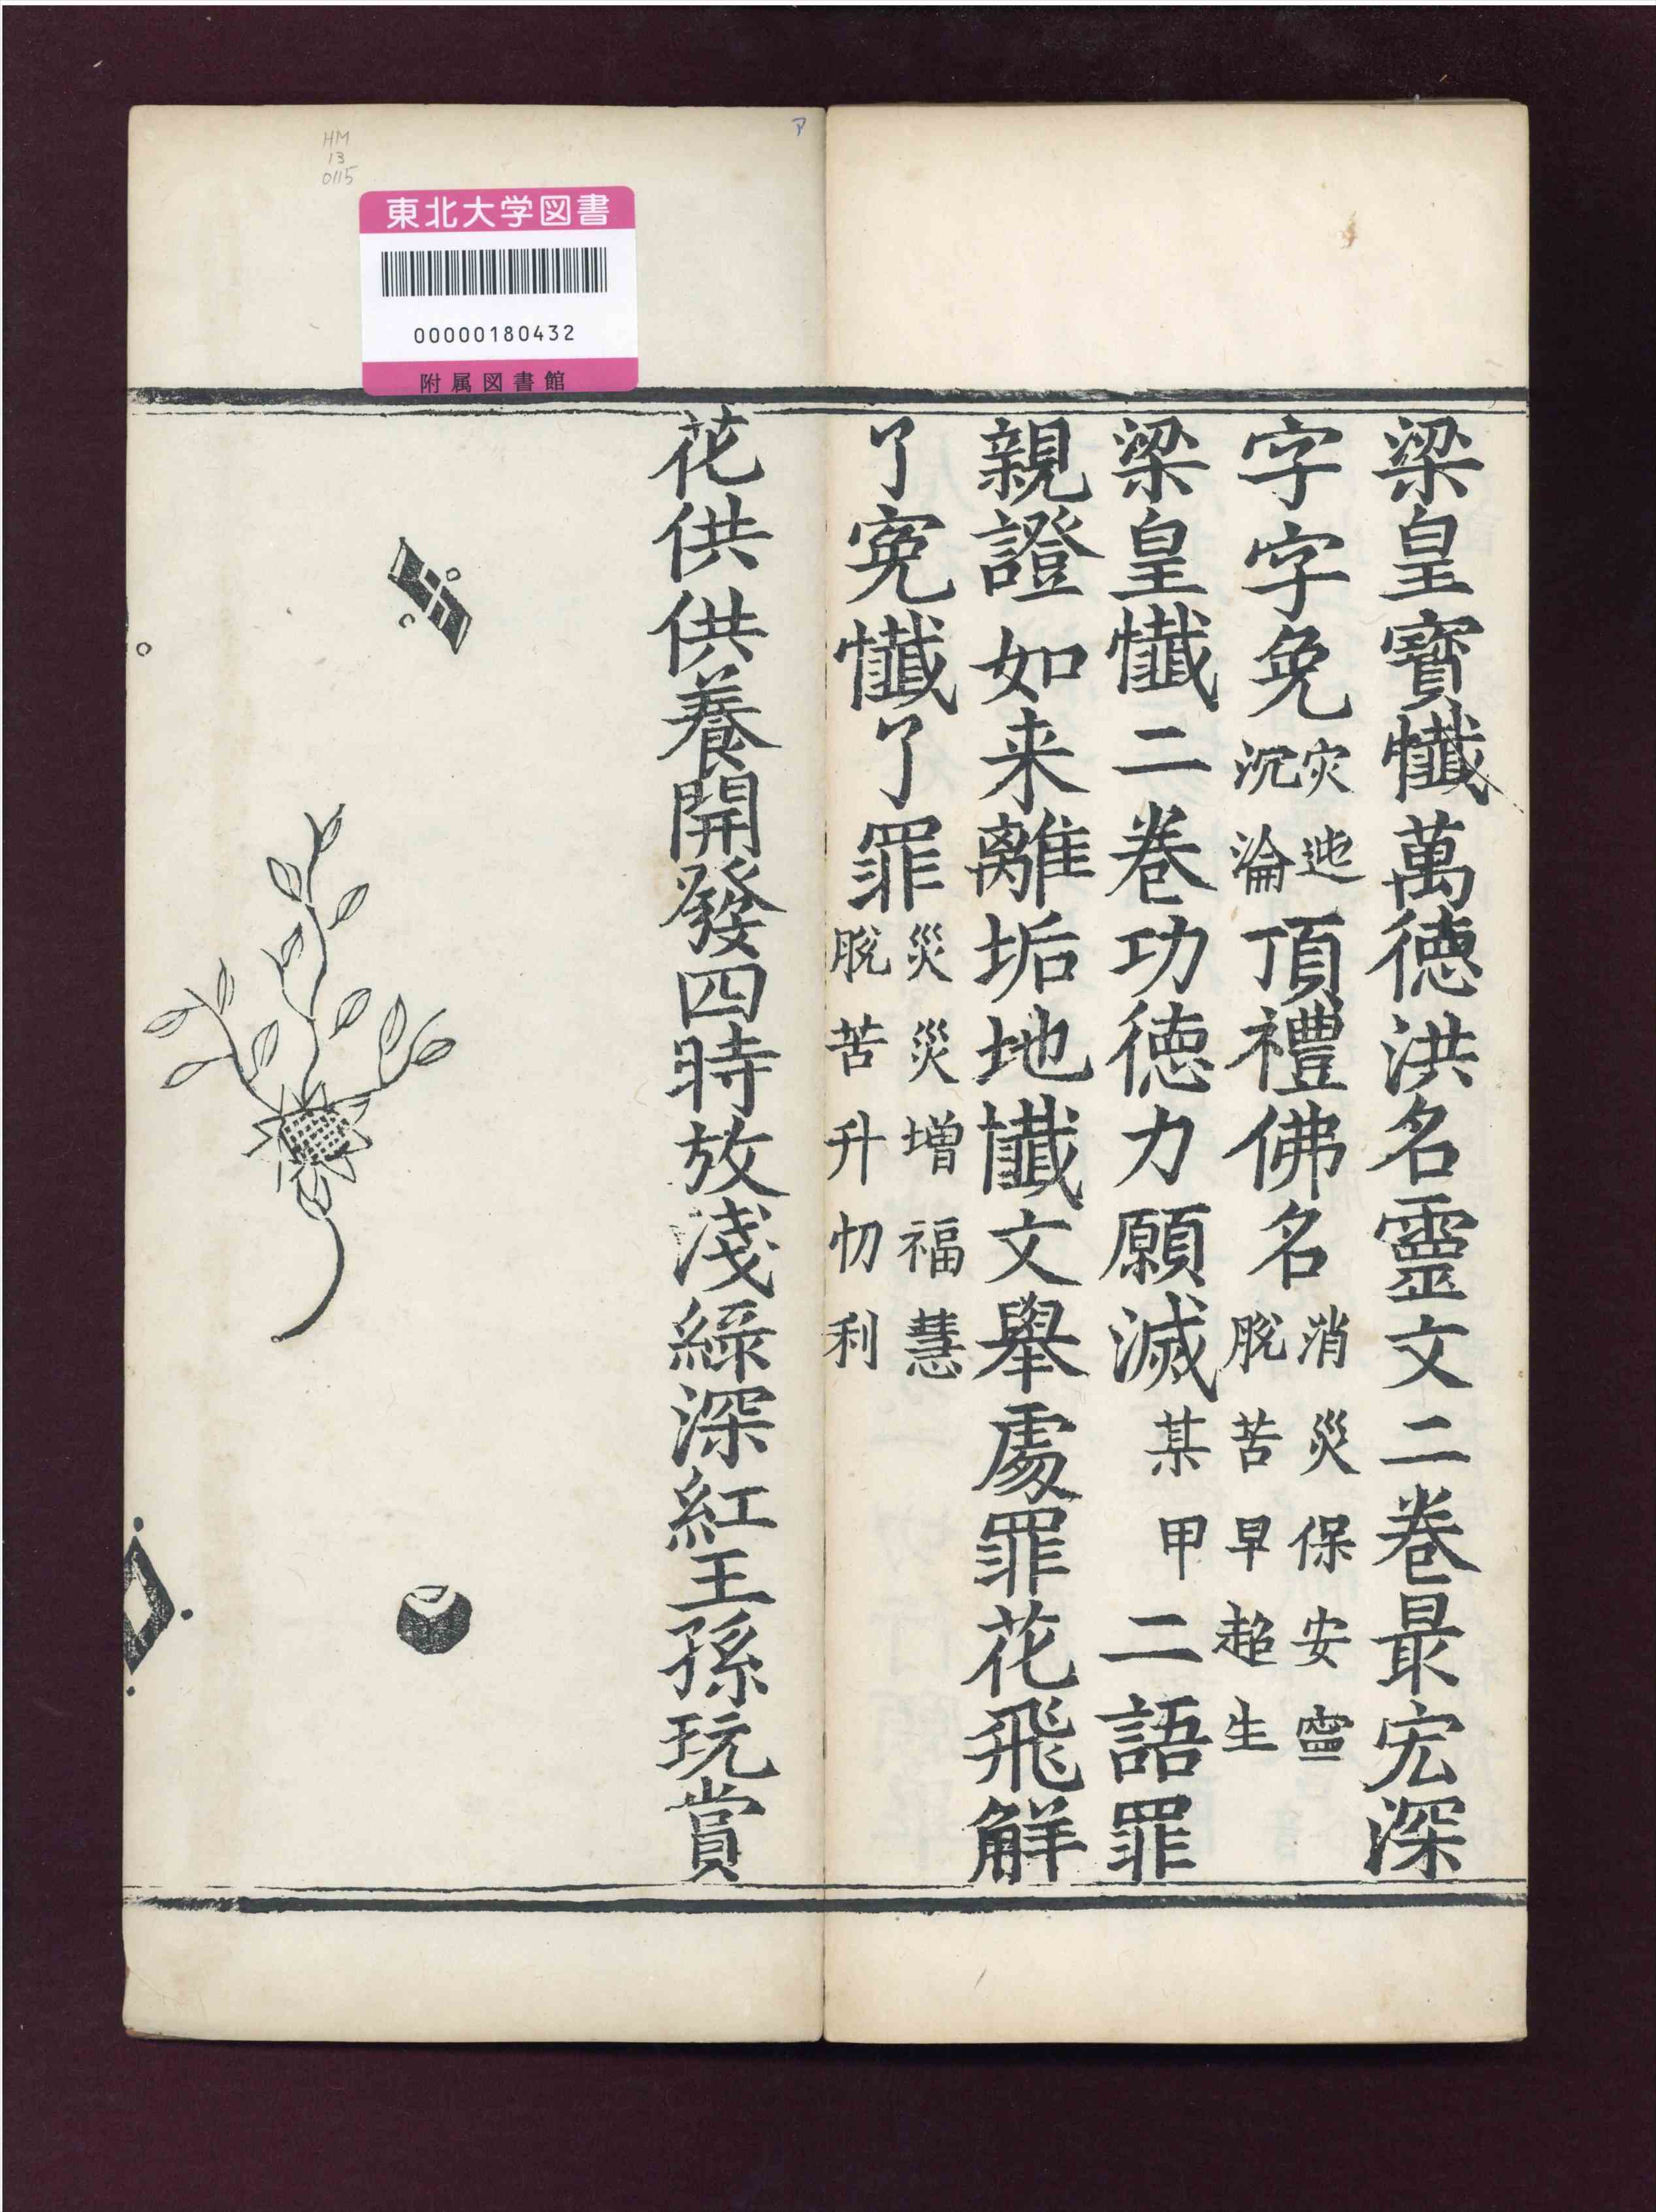 梁皇寳懺萬徳洪名靈文二卷最宏深
字字免灾迍沉淪頂禮佛名消災保安寧脫苦早超生
梁皇懺二卷功徳力願滅某甲二語罪
親證如来離垢地懺文舉處罪花飛觧
了寃懺了罪災災增福慧脫苦升忉利
花供供養開發四時放淺綠深紅王孫玩賞
HM
13
0115
ア
東北大学図書
00000180432
附属図書館